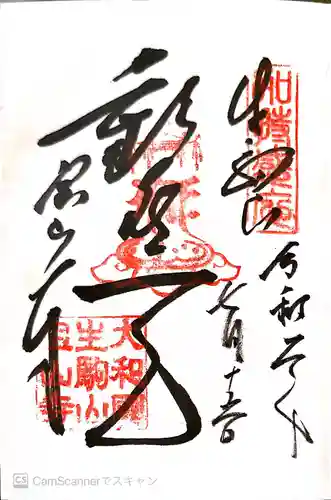 生駒山
令和元年
七月十五日
歓喜天
宝山寺
大和國
生駒山
宝山寺
CS CamScannerでスキャン